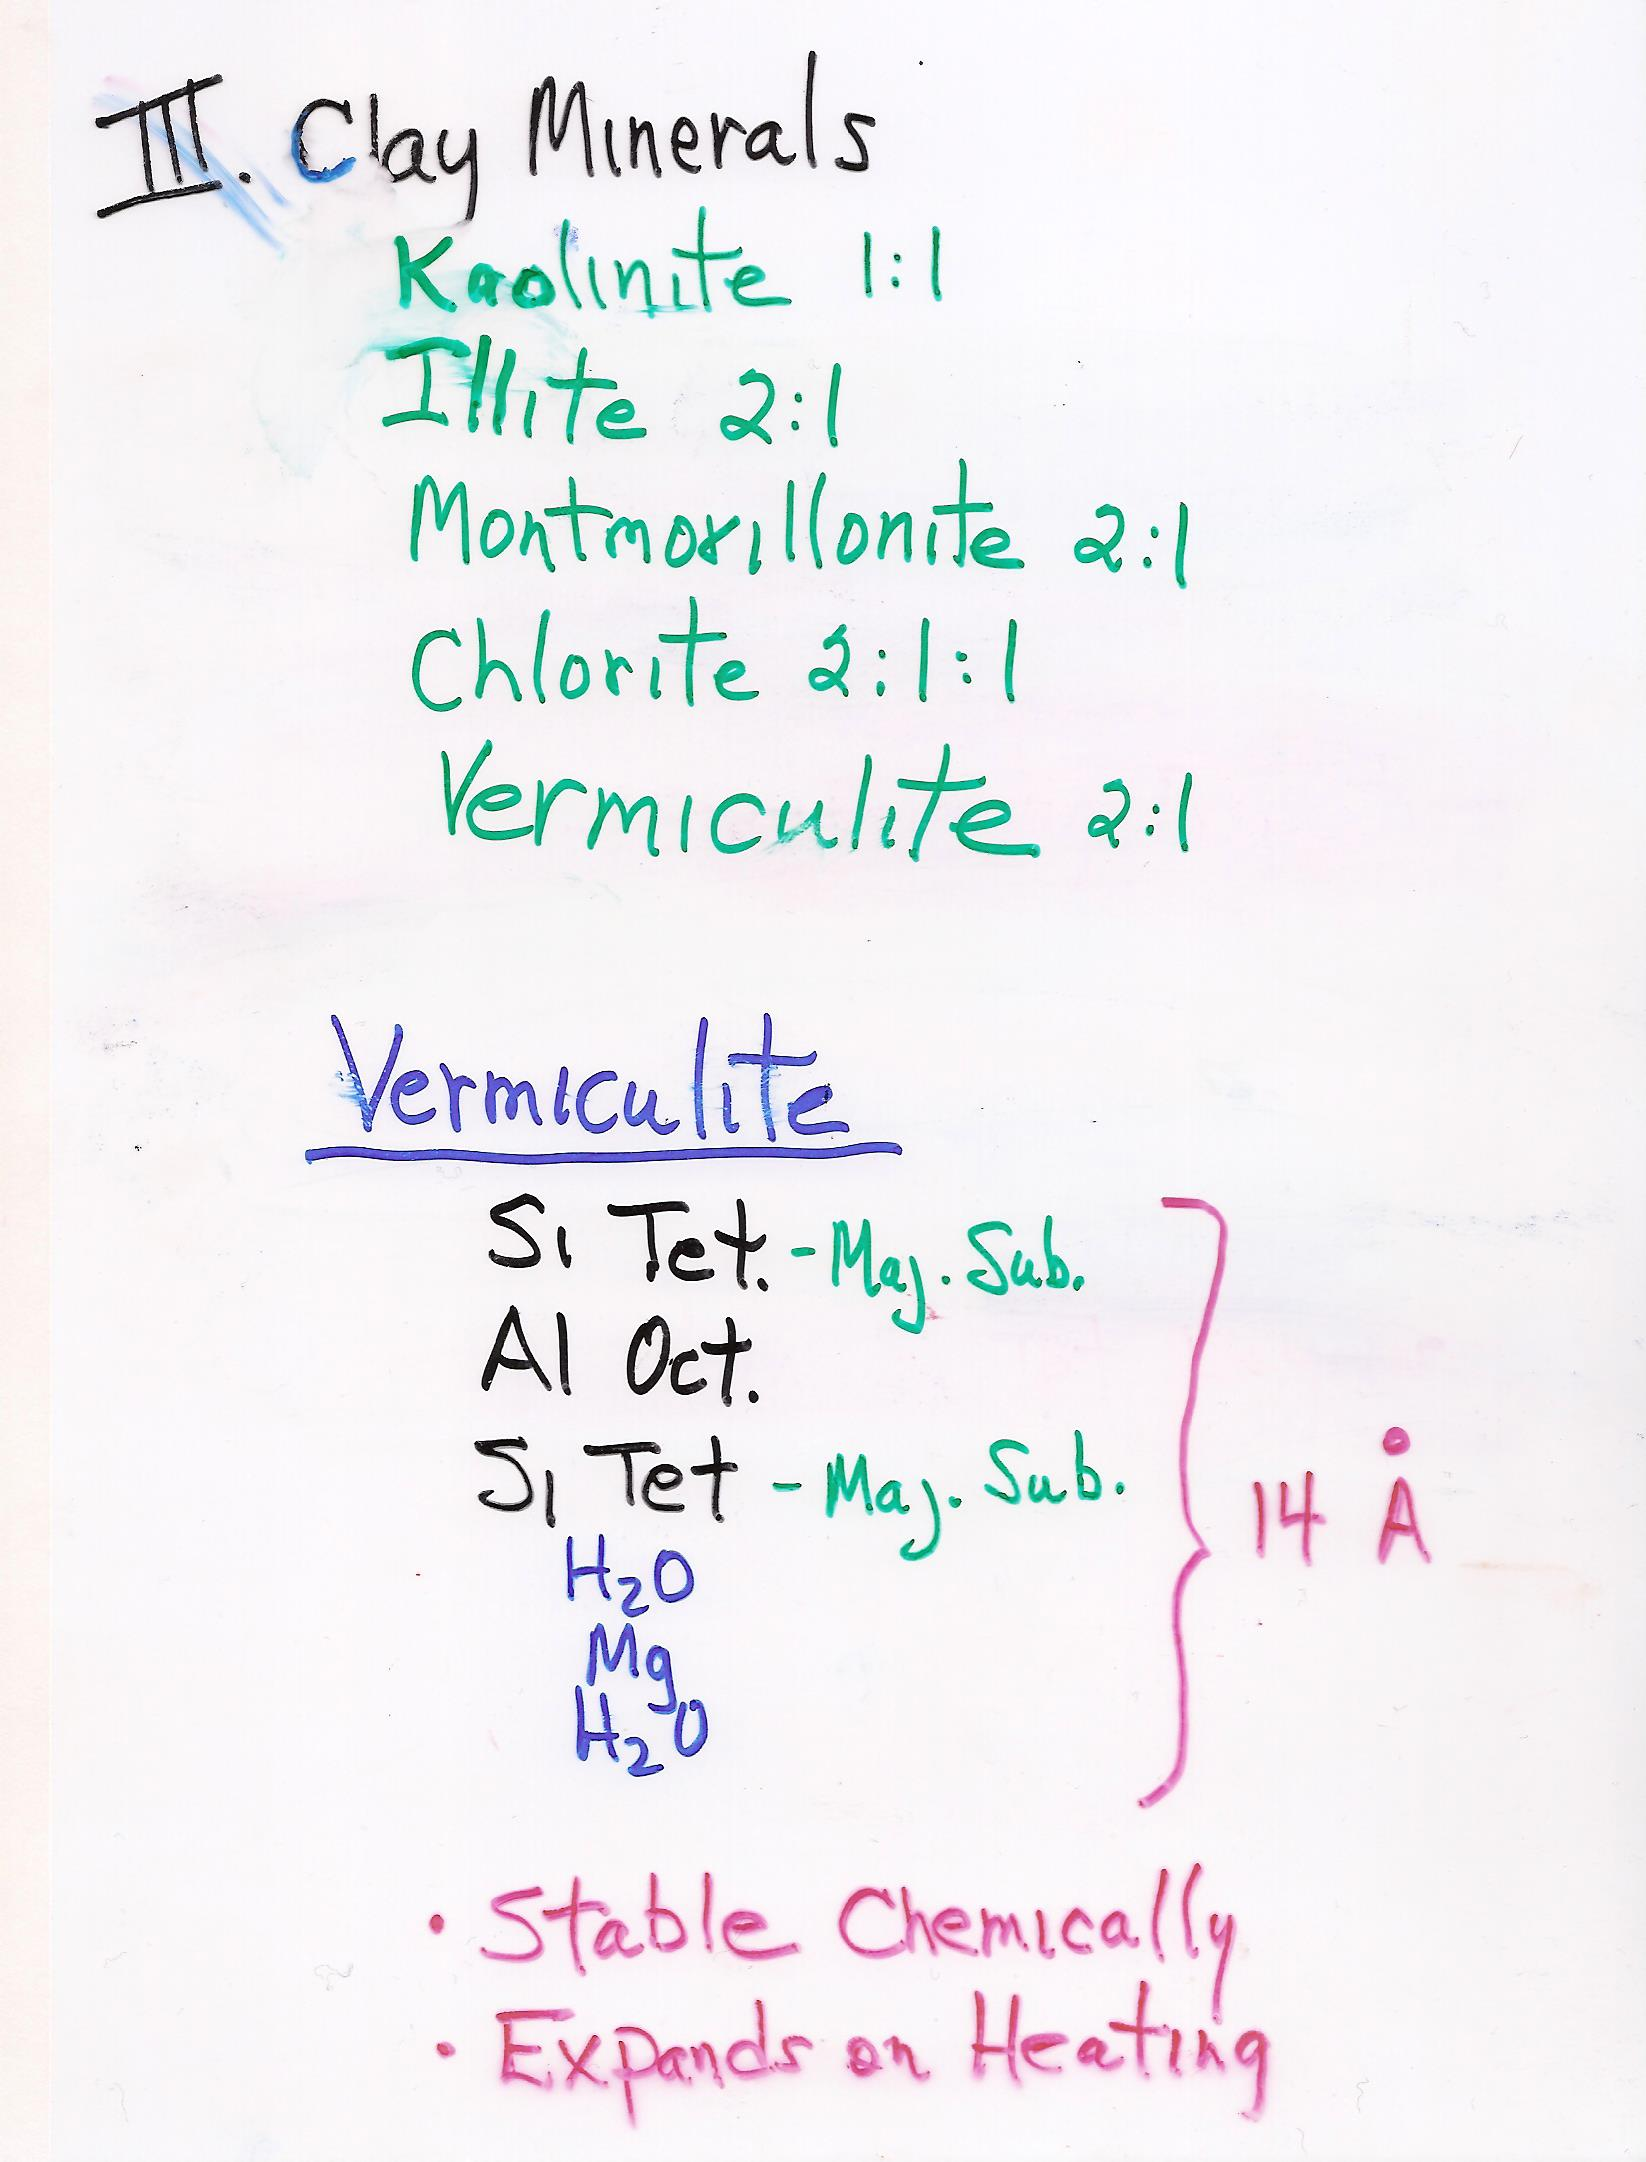 III. Clay Minerals
Kaolinite 1:1
Illite 2:1
Montmorillonite 2:1
Chlorite 2:1:1
Vermiculite 2:1
Vermiculite
Si Tet. - Maj. Sub.
Al Oct.
Si Tet - Maj. Sub.
H2O
Mg
H2O
14 Å
• Stable Chemically
• Expands on Heating